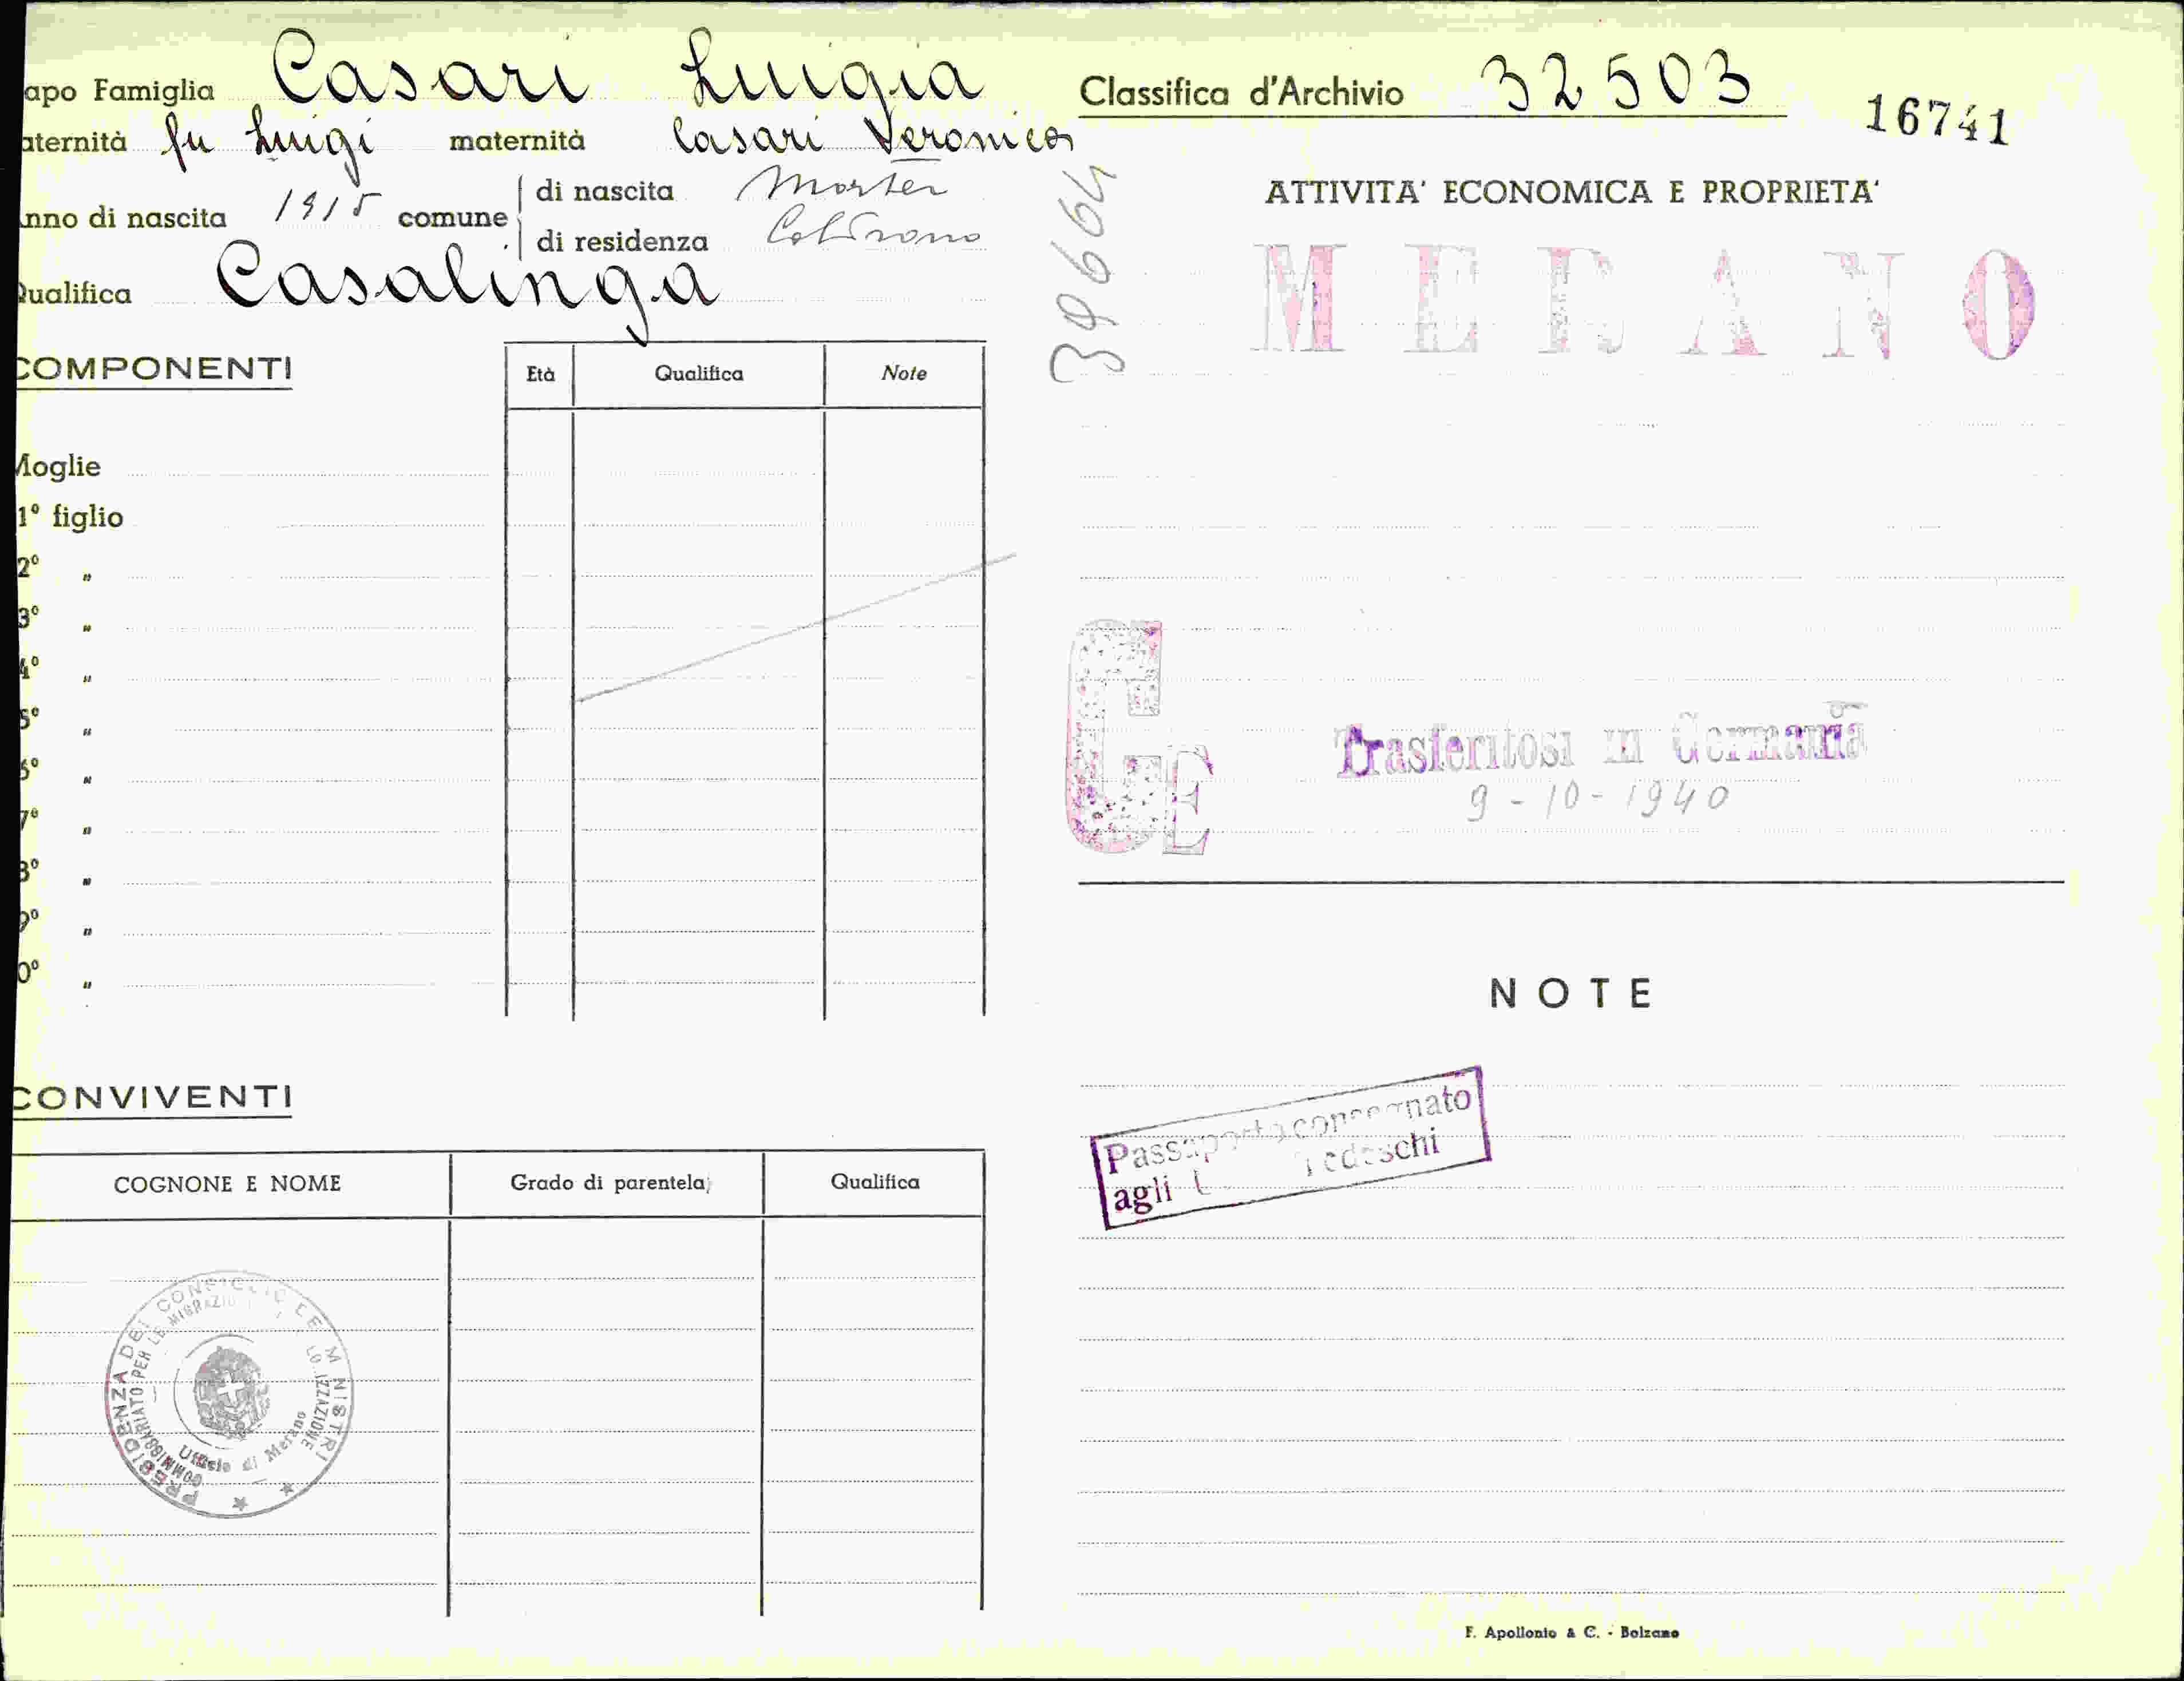 apo Famiglia Casari Luigia
aternità fu Luigi maternità Casari Veronica
nno di nascita 1915 comune di nascita Morter
di residenza Coldrano
Qualifica Casalinga
COMPONENTI
Età Qualifica Note
Moglie
1° figlio
2° "
3° "
4° "
5° "
6° "
7° "
8° "
9° "
0° "
CONVIVENTI
COGNONE E NOME Grado di parentela Qualifica
PRESIDENZA DEL CONSIGLIO DEI MINISTRI
COMMISSARIATO PER LE MIGRAZIONI
Ufficio di Merano
Classifica d'Archivio 32503
16741
39664
ATTIVITA' ECONOMICA E PROPRIETA'
MERANO
GE
Trasferitosi in Germania
9-10-1940
NOTE
Passaporto consegnato
agli Tedeschi
F. Apollonio & C. - Bolzano